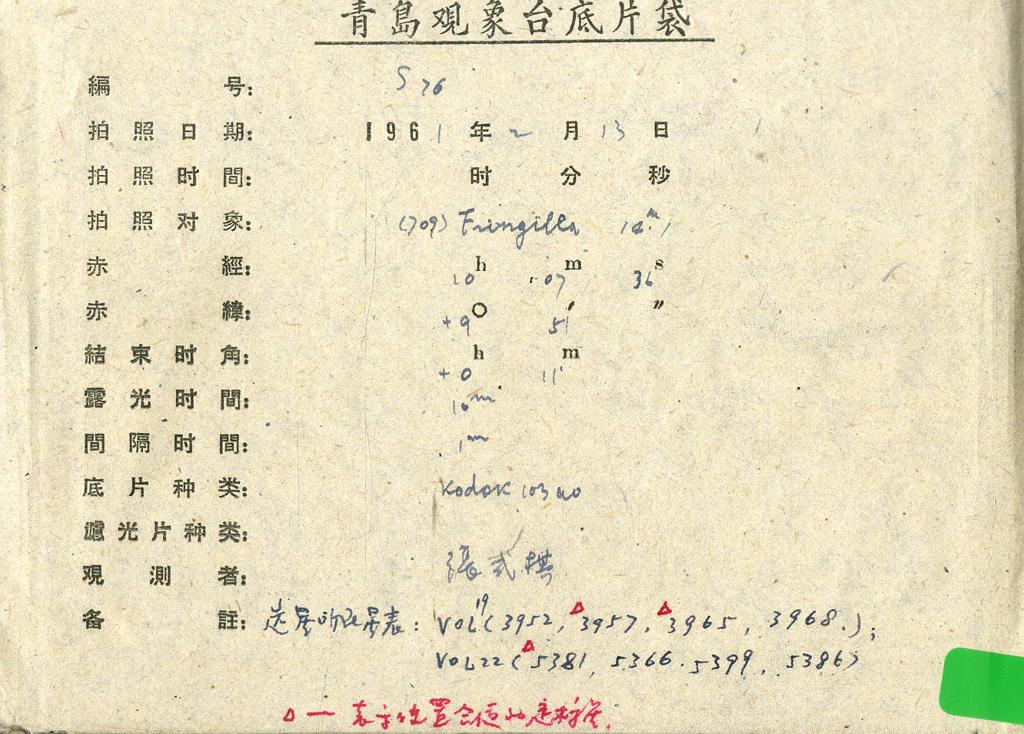 青島观象台底片袋
編号: S 76
拍照日期: 1961年2月13日
拍照时間: 时 分 秒
拍照对象: (709) Fringilla 12.m1
赤經: 10h 07m 36s
赤緯: +9° 51′ ″
結束时角: +0h 11m
露光时間: 10m
間隔时間: 1m
底片种类: Kodak 103ao
濾光片种类:
观測者: 張式棋
备註: 选星的星表: VOL19(3952, △3957, △3965, 3968.);
VOL22(△5381, 5366. 5399, 5386)
△ — 表示位置